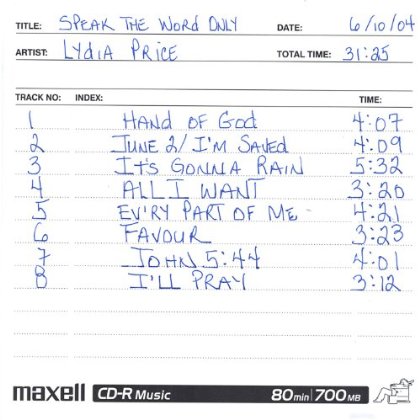 TITLE: SPEAK THE WORD ONLY DATE: 6/10/04
ARTIST: LYDIA PRICE TOTAL TIME: 31:25
TRACK NO: INDEX: TIME:
1 HAND OF GOD 4:07
2 JUNE 2/I'M SAVED 4:09
3 IT'S GONNA RAIN 5:32
4 ALL I WANT 3:20
5 EV'RY PART OF ME 4:21
6 FAVOUR 3:23
7 JOHN 5:44 4:01
8 I'LL PRAY 3:12
maxell CD-R Music 80min 700MB